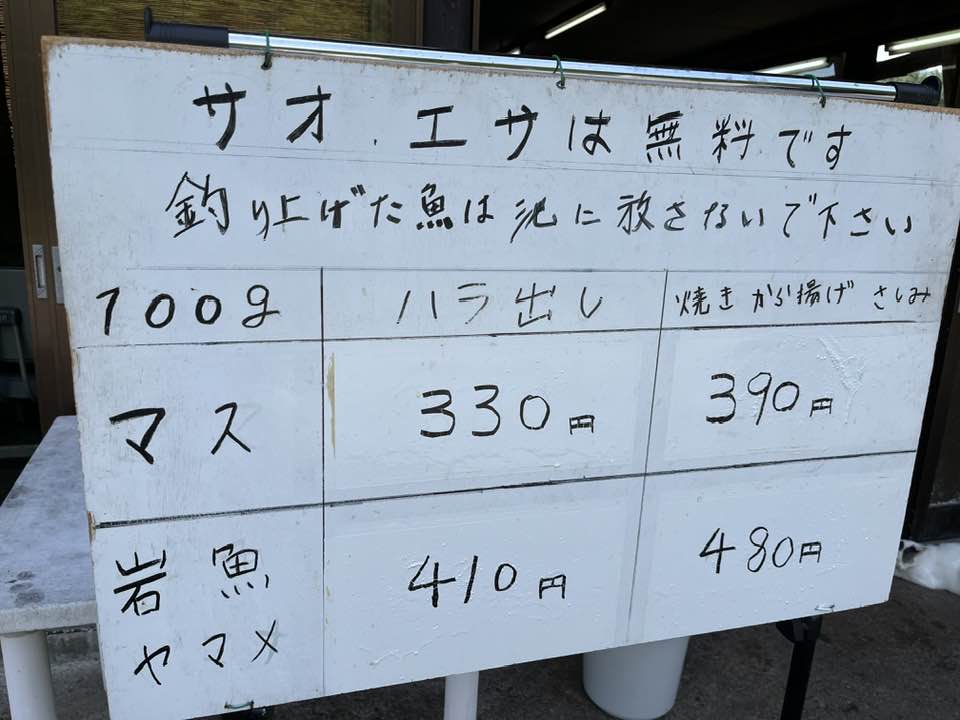 サオ.エサは無料です
釣り上げた魚は池に放さないで下さい
100g ハラ出し 焼き から揚げ さしみ
マス 330円 390円
岩魚 410円 480円
ヤマメ